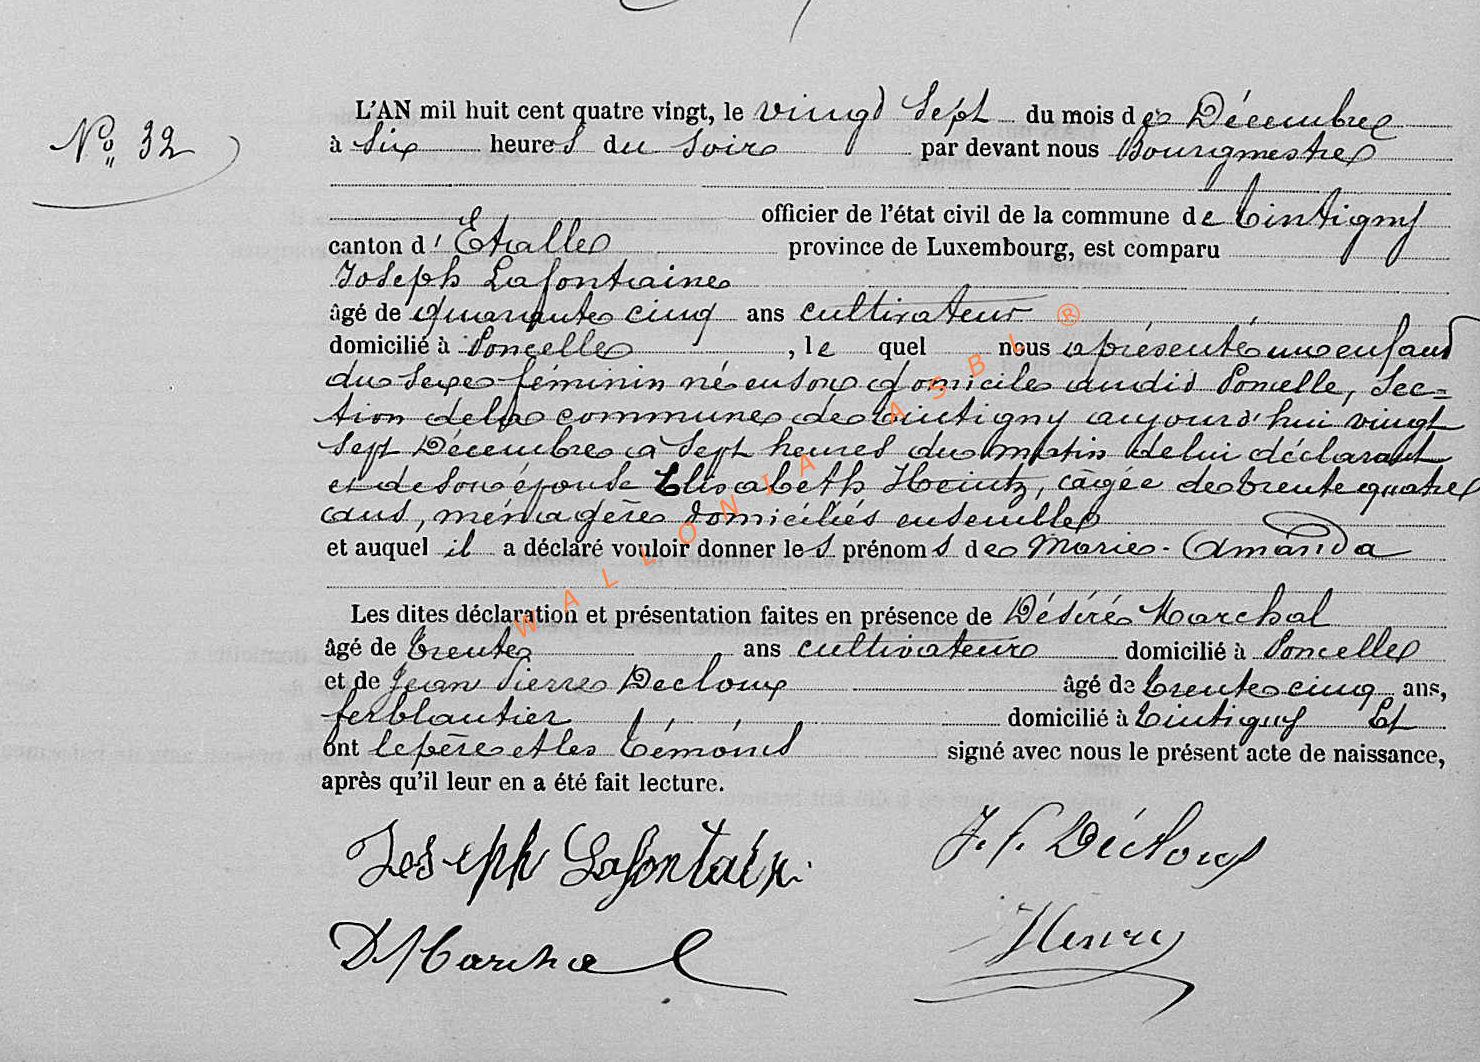 N° 32
L'AN mil huit cent quatre vingt, le vingt sept du mois de Décembre
à six heures du soir par devant nous Bourgmestre
officier de l'état civil de la commune de Tintigny
canton d'Etalle province de Luxembourg, est comparu
Joseph Lafontaine
âgé de quarante cinq ans cultivateur
domicilié à Poncelle, le quel nous a présenté un enfant
du sexe féminin né en son domicile audit Poncelle, Sec=
tion de la commune de Tintigny aujourd'hui vingt
sept Décembre à sept heures du matin de lui déclarant
et de son épouse Elisabeth Heintz, âgée de trente quatre
ans, ménagère domiciliés ensemble
et auquel il a déclaré vouloir donner les prénoms de Marie-Amanda
Les dites déclaration et présentation faites en présence de Désiré Marchal
âgé de trente ans cultivateur domicilié à Poncelle
et de Jean Pierre Decloux âgé de trente cinq ans,
ferblantier domicilié à Tintigny Et
ont le père et les témoins signé avec nous le présent acte de naissance,
après qu'il leur en a été fait lecture.
Joseph Lafontain
J. P. Décloux
D Marchal
Henry
WALLONIA ASBL ®